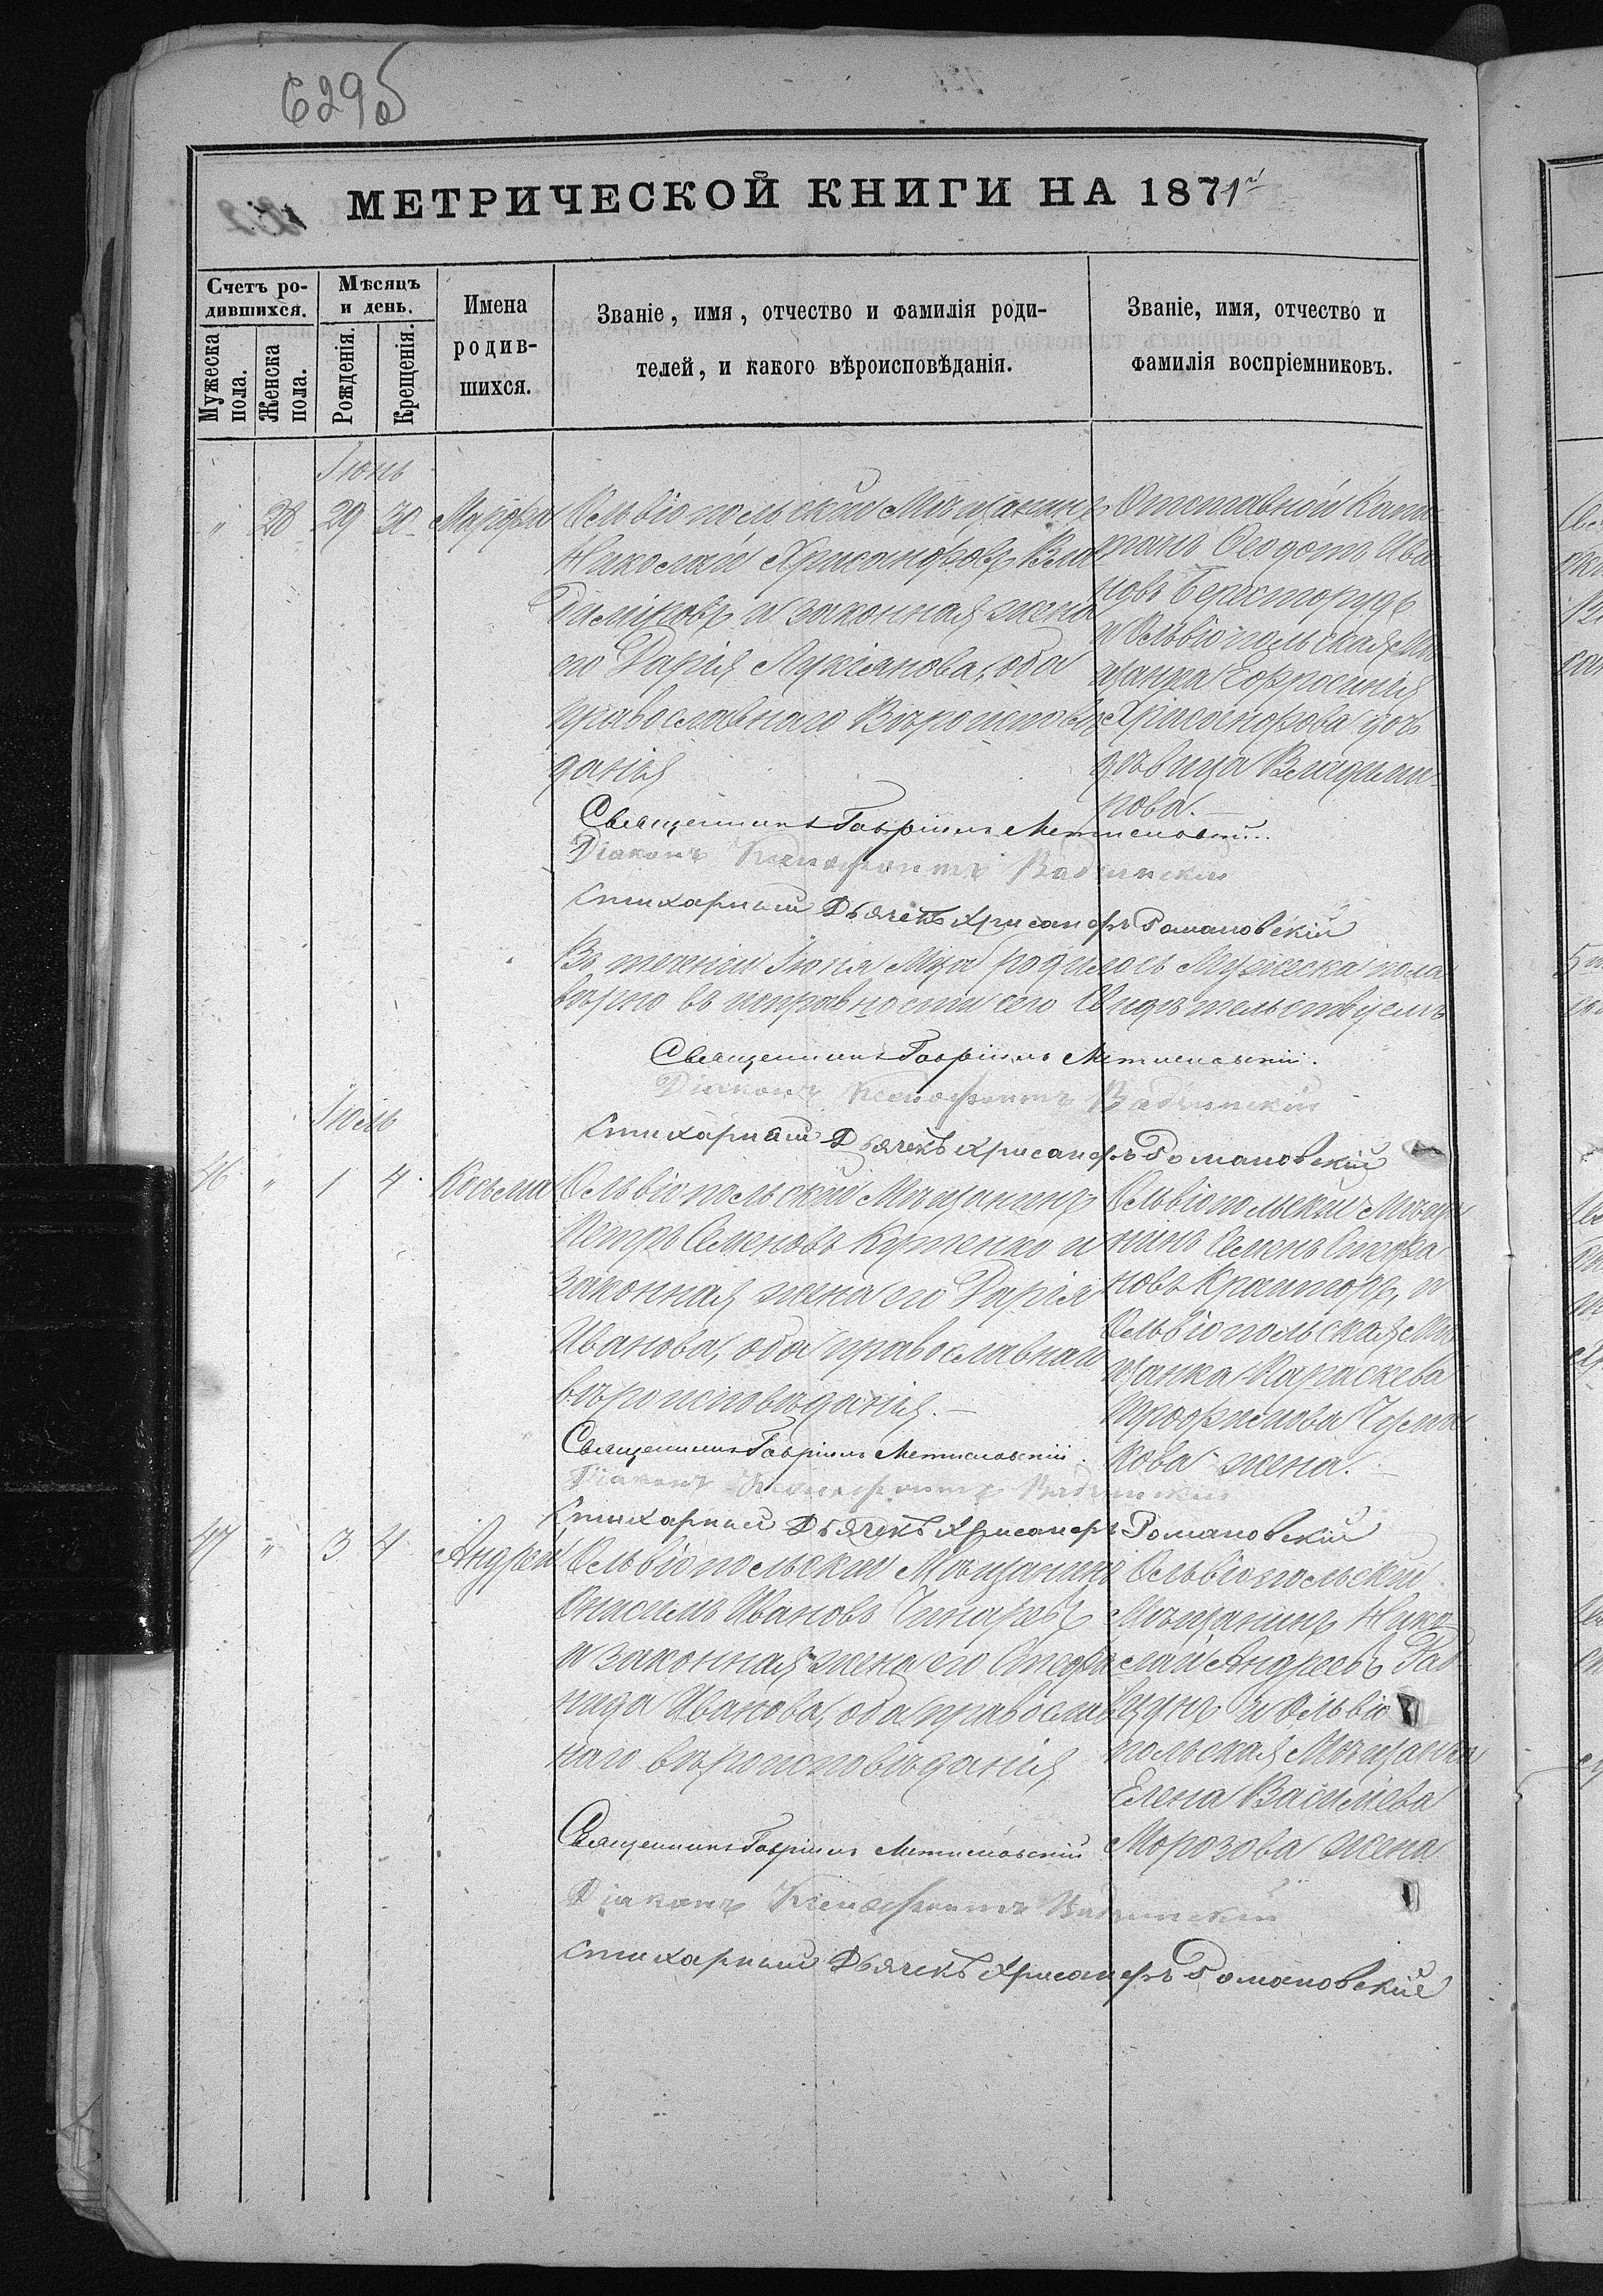 629об
МЕТРИЧЕСКОЙ КНИГИ НА 1871й
Счетъ ро-
дившихся.
Мужеска
пола.
Женска
пола.
Мѣсяцъ
и день.
Рожденія.
Крещенія.
Имена
родив-
шихся.
Званіе, имя, отчество и фамилія роди-
телей, и какого вѣроисповѣданія.
Званіе, имя, отчество и
фамилія воспріемниковъ.
Іюнь
" 28 29 30 Марфа
Ольвіопольскій Мѣщанинъ
Николай Хрисанфовъ Вла
диміровъ и законная жена
его Дарія Лукіанова, оба
православнаго Вѣроисповѣ
данія
Отставной Капи
танъ Ѳеодотъ Ива
новъ
и Ольвіопольская Мѣ
щанка Ефросинія
Хрисанфова дочь
дѣвица Владими
рова.
Священникъ Гавріилъ
Діаконъ Ксенофонтъ
Стихарный Дьячекъ Хрисанфъ Романовскій
Въ теченіи Іюня Мца родилось Мужеска пола
вѣрно въ исправности сего Свидѣтельствуемъ
Священникъ Гавріилъ
Діаконъ Ксенофонтъ
Стихарный Дьячекъ Хрисанфъ Романовскій
Іюль
46 " 1 4 Косьма
Ольвіопольскій Мѣщанинъ
Петръ Семеновъ Куценко и
законная жена его Дарія
Иванова, оба православнаго
вѣроисповѣданія.
Ольвіопольскій Мѣща
нинъ Семенъ Стефа
новъ и
Ольвіопольская Мѣ
щанка Параскева
Трофимова
кова жена.
Священникъ Гавріилъ
Діаконъ Ксенофонтъ
Стихарный Дьячекъ Хрисанфъ Романовскій
47 " 3 4 Андрей
Ольвіопольскій Мѣщанинъ
Онисимъ Ивановъ
и законная жена его Стефа
нида Иванова, оба православ
наго вѣроисповѣданія
Ольвіопольскій
Мѣщанинъ Нико
лай Андреевъ
и Ольвіо
польская Мѣщанка
Елена Василіева
Морозова жена
Священникъ Гавріилъ
Діаконъ Ксенофонтъ
Стихарный Дьячекъ Хрисанфъ Романовскій